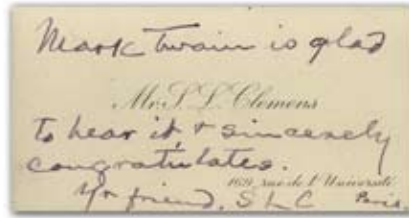 Mark Twain is glad
Mr. S. L. Clemens
to hear it & sincerely
congratulates.
169, rue de l'Université
Yr friend, S L C Paris.